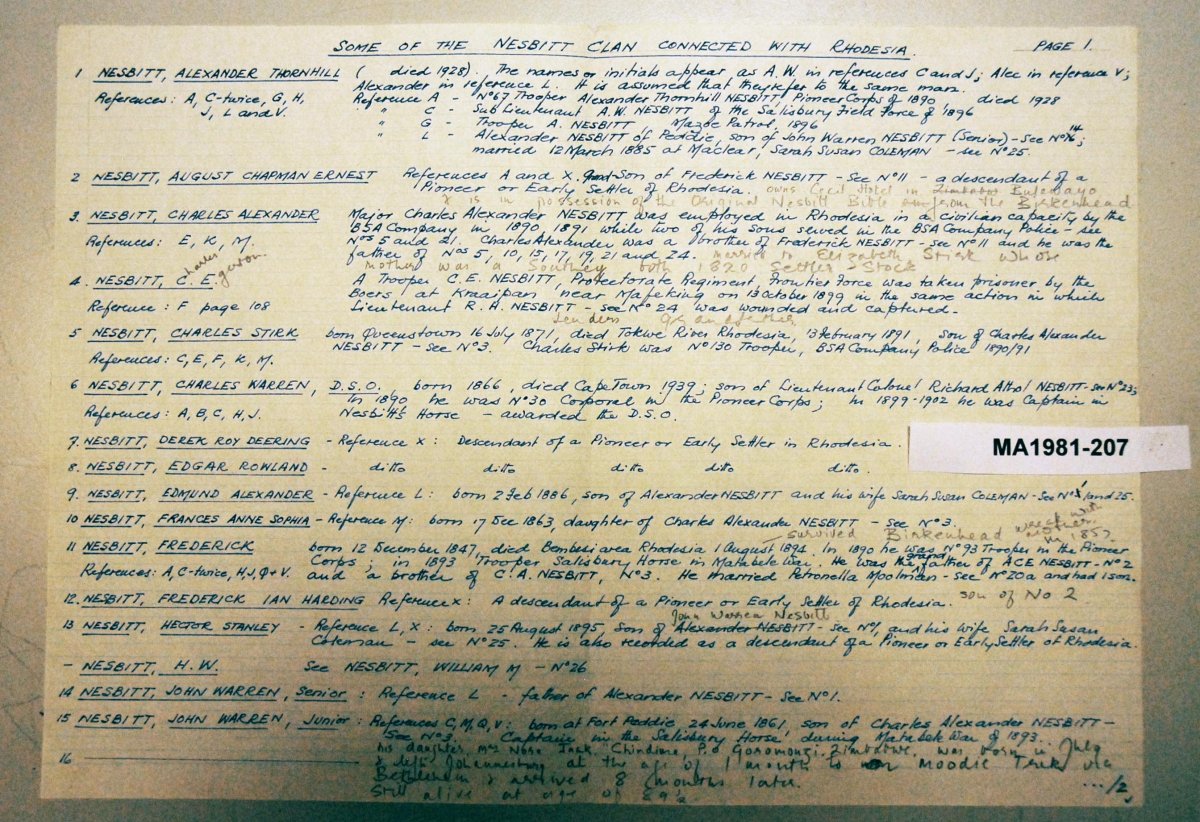 SOME OF THE NESBITT CLAN CONNECTED WITH RHODESIA. PAGE 1.
1 NESBITT, ALEXANDER THORNHILL ( died 1928). The names or initials appear, as A.W. in references C and J; Alec in reference V;
Alexander in reference L. It is assumed that they refer to the same man.
References: A, C-twice, G, H, Reference A - No 67 Trooper Alexander Thornhill NESBITT, Pioneer Corps of 1890, died 1928
J, L and V. " C - Sub Lieutenant A.W. NESBITT of the Salisbury Field Force of 1896
" G - Trooper A. NESBITT Mazoe Patrol, 1896
" L - Alexander NESBITT of Peddie, son of John Warren NESBITT (Senior) - See No 14;
married 12 March 1885 at Maclear, Sarah Susan COLEMAN - see No 25.
2 NESBITT, AUGUST CHAPMAN ERNEST References A and X. Grand-Son of Frederick NESBITT - See No 11 - a descendant of a
Pioneer or Early Settler of Rhodesia. owns Cecil Hotel in Zimbabwe Bulawayo
& is in possession of the Original Nesbitt Bible from the Birkenhead
3. NESBITT, CHARLES ALEXANDER Major Charles Alexander NESBITT was employed in Rhodesia in a civilian capacity by the
BSA Company in 1890, 1891 while two of his sons served in the BSA Company Police - see
References: E, K, M. Nos 5 and 21. Charles Alexander was a brother of Frederick NESBITT - see No 11 and he was the
father of Nos 5, 10, 15, 17, 19, 21 and 24. married to Elizabeth Stirk whose
mother was a Southey both 1820 Settler Stock
4. NESBITT, C. E. Charles Egerton. A Trooper C.E. NESBITT, Protectorate Regiment, Frontier Force was taken prisoner by the
Boers, at Kraaipan, near Mafeking on 13 October 1899 in the same action in which
Reference: F page 108 Lieutenant R.H. NESBITT - see No 24 was wounded and captured.
5 NESBITT, CHARLES STIRK born Queenstown 16 July 1871, died Tokwe River Rhodesia, 13 February 1891, Son of Charles Alexander
NESBITT - See No 3. Charles Stirk was No 130 Trooper, BSA Company Police 1890/91
References: C, E, F, K, M.
6 NESBITT, CHARLES WARREN, D.S.O., born 1866, died Cape Town 1939; son of Lieutenant Colonel Richard Athol NESBITT - see No 23;
In 1890 he was No 30 Corporal in the Pioneer Corps; in 1899-1902 he was Captain in
References: A, B, C, H, J. Nesbitt's Horse - awarded the D.S.O.
7. NESBITT, DEREK ROY DEERING - Reference X: Descendant of a Pioneer or Early Settler in Rhodesia.
8. NESBITT, EDGAR ROWLAND - ditto ditto ditto ditto ditto.
MA1981-207
9. NESBITT, EDMUND ALEXANDER - Reference L: born 2 Feb 1886, son of Alexander NESBITT and his wife Sarah Susan COLEMAN - see Nos 1 and 25.
10 NESBITT, FRANCES ANNE SOPHIA - Reference M: born 17 Dec 1863, daughter of Charles Alexander NESBITT - see No 3.
survived Birkenhead wreck with mother in 1852.
11 NESBITT, FREDERICK born 12 December 1847, died Bembesi area Rhodesia 1 August 1894. In 1890 he was No 93 Trooper in the Pioneer
Corps; in 1893 Trooper Salisbury Horse in Matabele War. He was the grand father of ACE NESBITT - No 2
References: A, C-twice, H, J, Q + V. and a brother of C.A. NESBITT, No 3. He married Petronella Moolman - see No 20a and had 1 son.
12. NESBITT, FREDERICK IAN HARDING Reference X: A descendant of a Pioneer or Early Settler of Rhodesia. son of No 2
John Warren Nesbitt
13 NESBITT, HECTOR STANLEY - Reference L, X: born 25 August 1895, son of Alexander NESBITT - see No 1, and his wife Sarah Susan
Coleman - see No 25. He is also recorded as a descendant of a Pioneer or Early Settler of Rhodesia.
- NESBITT, H.W. See NESBITT, WILLIAM M - No 26
14 NESBITT, JOHN WARREN, Senior: Reference L - father of Alexander NESBITT - See No 1.
15 NESBITT, JOHN WARREN, Junior: References C, M, Q, V: born at Fort Peddie, 24 June 1861, son of Charles Alexander NESBITT -
See No 3. Captain in the Salisbury Horse, during Matabele War of 1893.
his daughter, Mrs Nora Chindima, P.O. Goromonzi, Zimbabwe, was born in
16 & left Johannesburg at the age of 1 month to Moodie Trek via
Bethlehem & arrived 8 months later.
Still alive at age of 89½
.../2